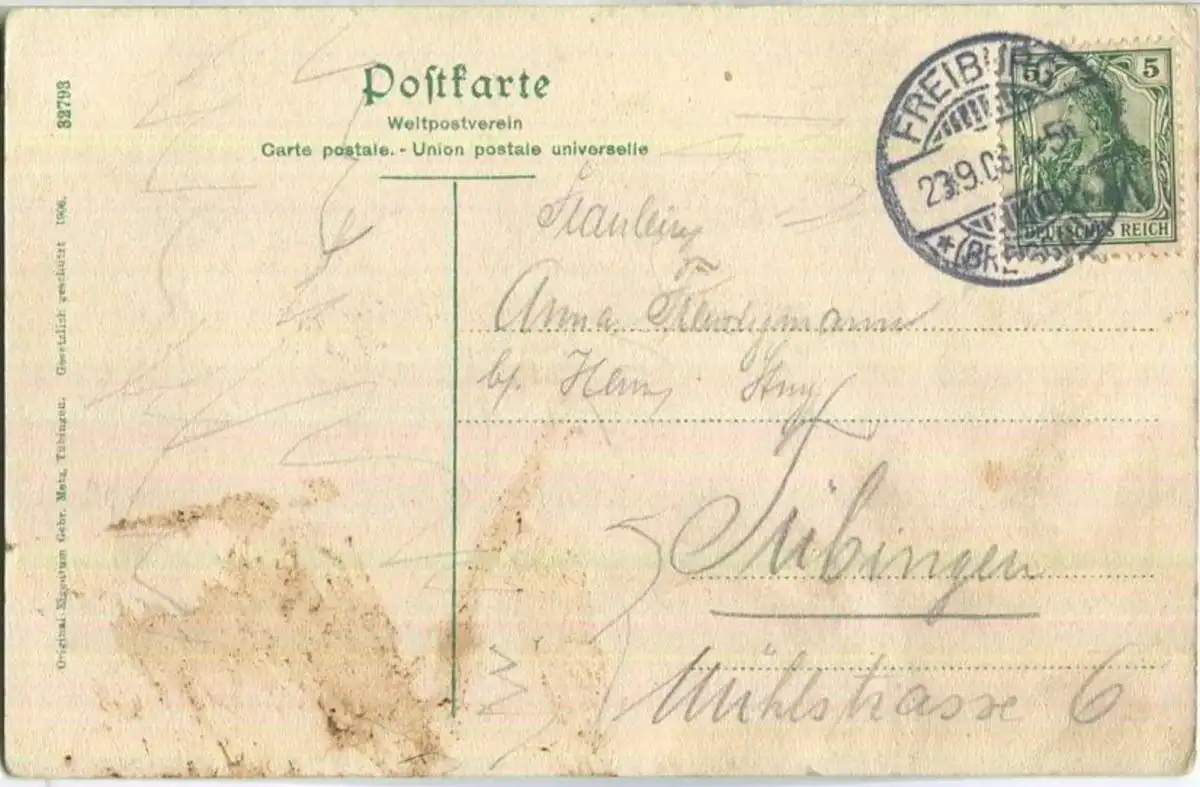 Postkarte
Weltpostverein
Carte postale. - Union postale universelle
32793
Original Eigentum Gebr. Metz, Tübingen. Gesetzlich geschützt 1906.
FREIBURG
5 5
DEUTSCHES REICH
Fräulein
Anna
Tübingen
Mühlstrasse 6